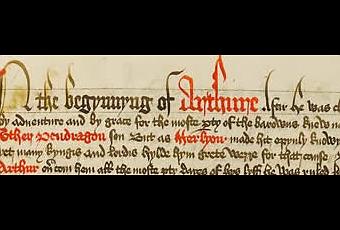 In the begynnyng of Arthure Aftir he was c
by adventure and by grace for the moste pty of the barowns knew n
Vther Pendragon son But as Merlyon made hit opynly knowy
yet many kyngis and lordis hylde hym grete werre for that cause
Arthur om com hem all the moste pty dayes of hys lyff he was ruled